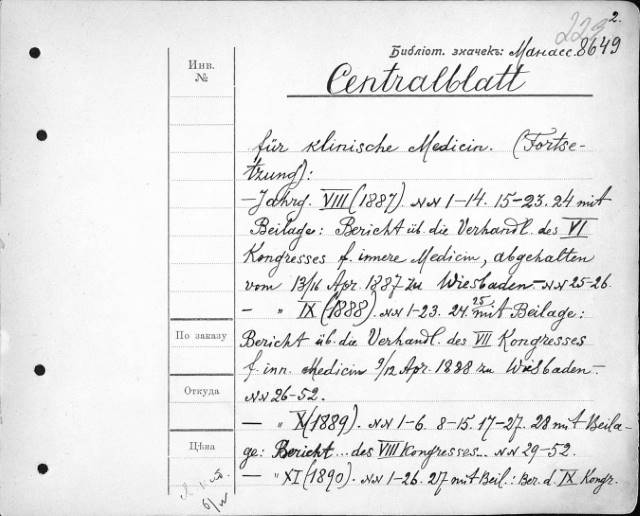 2.
223
Библіот. значекъ: Манасс. 8649
Инв.
№
Centralblatt
für klinische Medicin. (Fortse-
tzung):
— Jahrg. VIII (1887). NN 1-14. 15-23. 24 mit
Beilage: Bericht üb. die Verhandl. des VI
Kongresses f. innere Medicin, abgehalten
vom 13/16 Apr. 1887 zu Wiesbaden. — NN 25-26.
— " IX (1888). NN 1-23. 24. 25. mit Beilage:
По заказу
Bericht üb. die Verhandl. des VII Kongresses
f. inn. Medicin 9/12 Apr. 1888 zu Wiesbaden. —
Откуда
NN 26-52.
— " X (1889). NN 1-6. 8-15. 17-27. 28 mit Beila-
Цѣна
ge: Bericht... des VIII Kongresses... NN 29-52.
— " XI (1890). NN 1-26. 27 mit Beil.: Ber. d. IX Kongr.